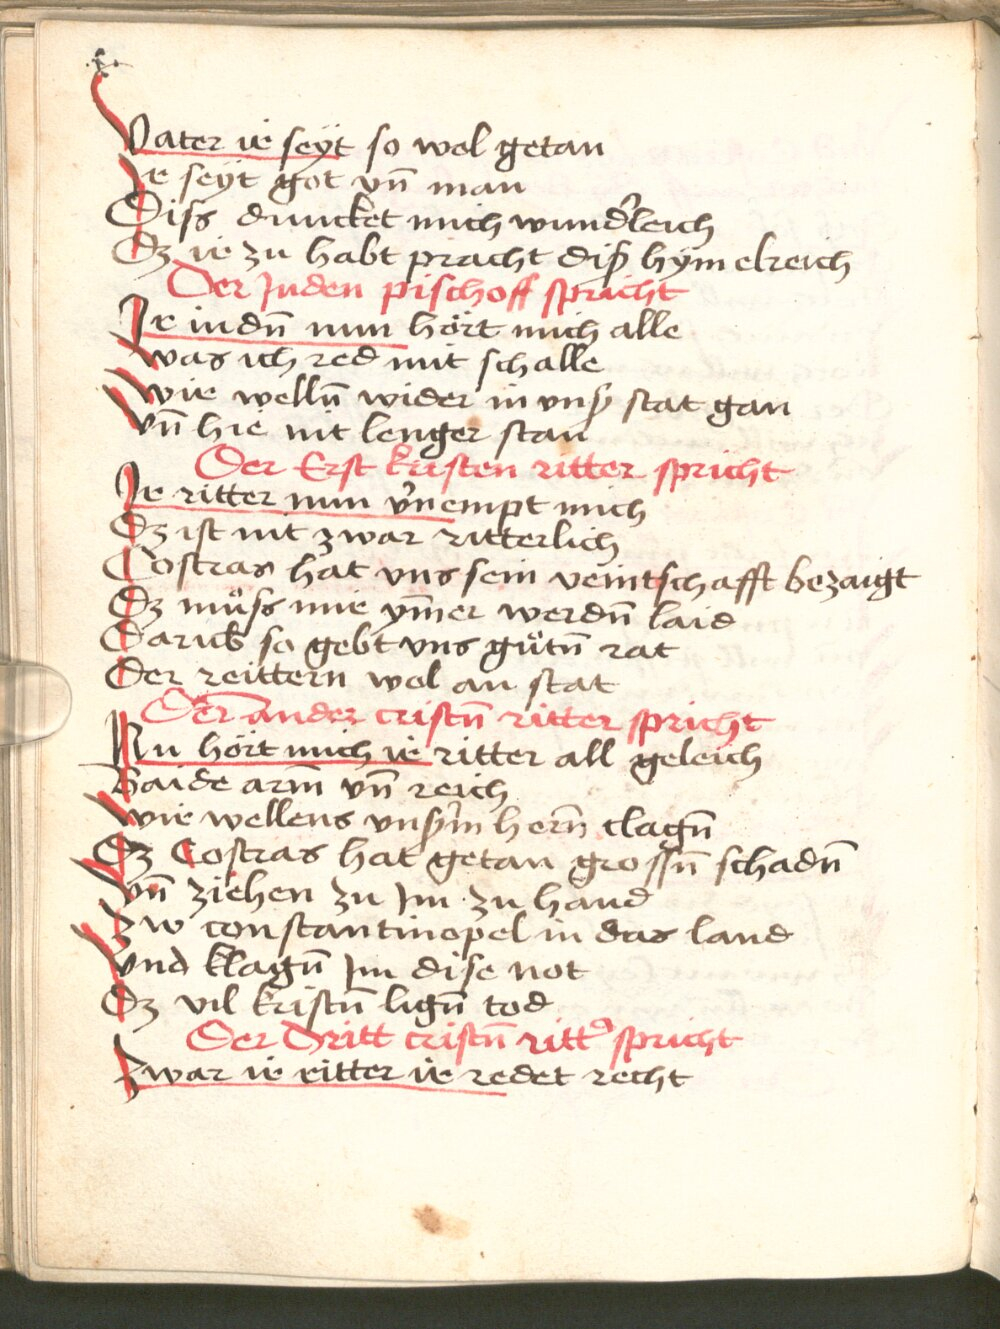 Vater ir seyt so wol getan
Ir seyt got vn̄ man
Diss duncket mich wund᷑leich
Dz ir zu habt pracht diß hymelreich
Der Juden pischoff spricht
Ir iudn̄ nun hört mich alle
was ich red mit schalle
wir welln̄ wider in vnß stat gan
vn̄ hie nit lenger stan
Der Erst kristen ritter spricht
Ir ritter nun v᷑nempt mich
Dz ist nit zwar ritterlich
Costras hat vns sein veintschafft bezaigt
Dz müss mir ym̄er werdn̄ laid
Darub̄ so gebt vns gütn̄ rat
Der reittern wol an stat
Der Ander cristn̄ ritter spricht
Nu hört mich ir ritter all geleich
Baide arm̄ vn̄ reich
wir wellens vnß᷑m hern̄ clagn̄
Dz Costras hat getan grossn̄ schadn̄
vn̄ ziehen zu Im zu hand
Zw constantinopel in das land
vnd klagn̄ Im dise not
Dz vil kristn̄ lign̄ tod
Der Dritt cristn̄ ritt᷑ spricht
Zwar ir ritter ir redet recht